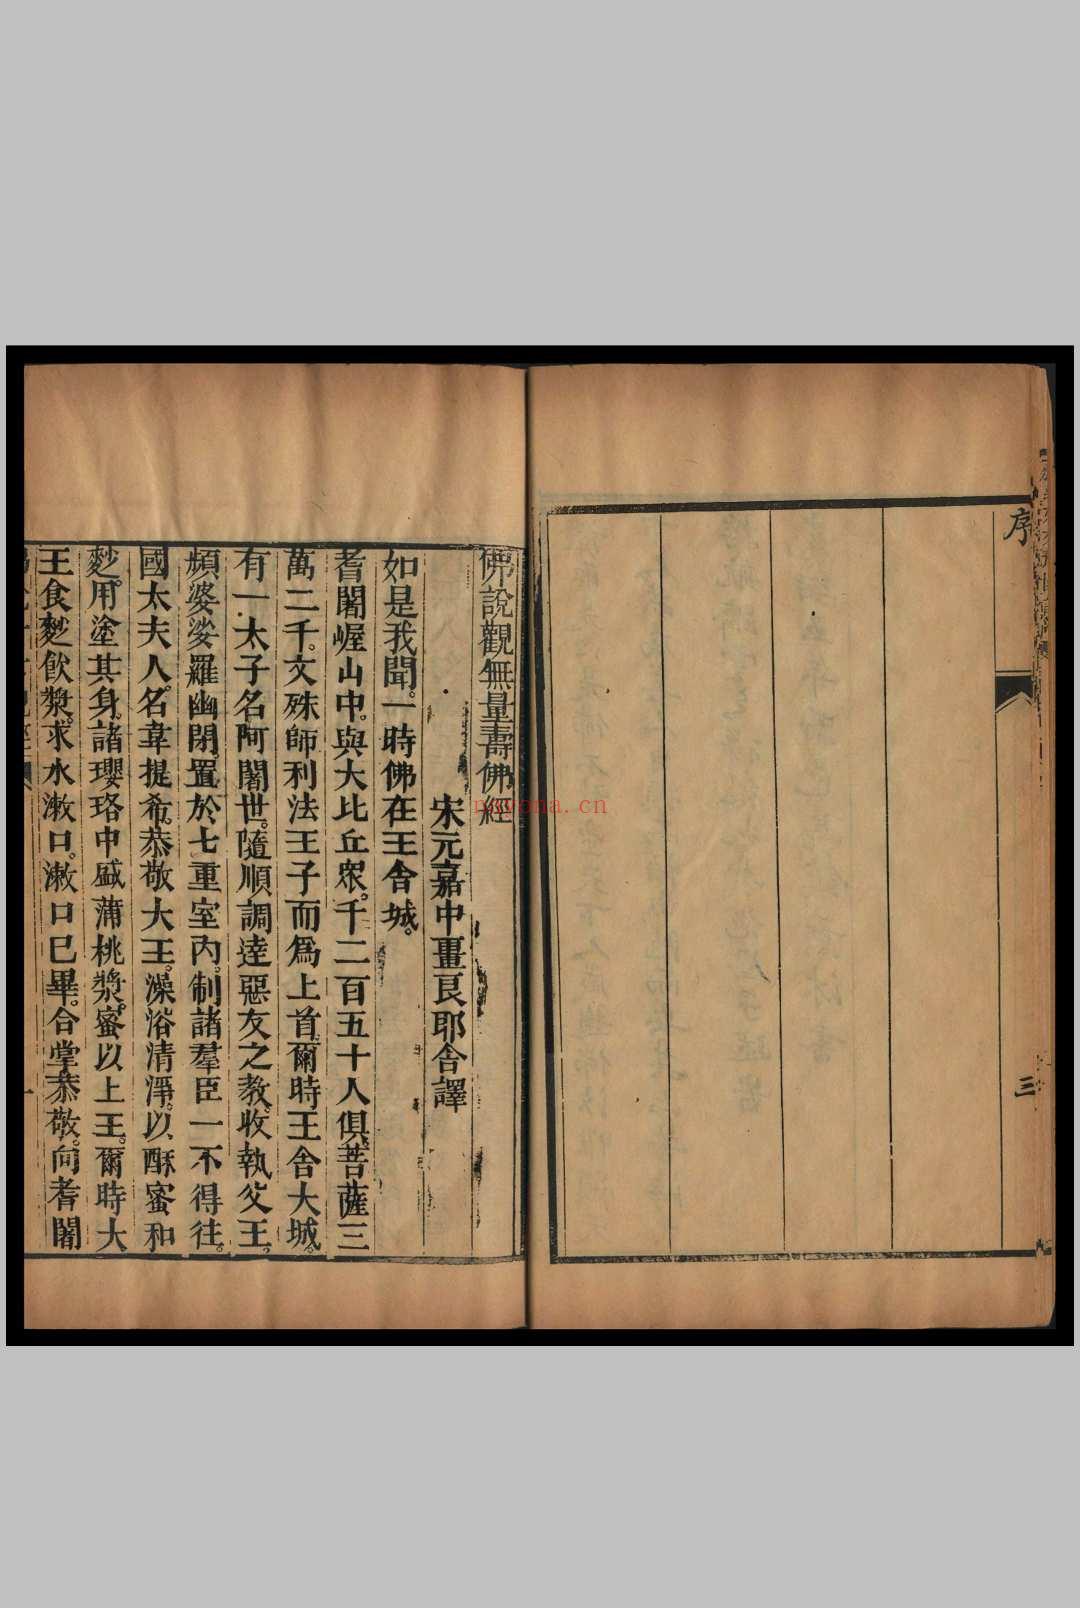 序
三
佛說觀無量壽佛經
宋元嘉中畺良耶舍譯
如是我聞。一時佛在王舍城。
耆闍崛山中。與大比丘眾。千二百五十人俱。菩薩三
萬二千。文殊師利法王子而爲上首。爾時王舍大城。
有一太子名阿闍世。隨順調達惡友之教。收執父王。
頻婆娑羅幽閉。置於七重室內。制諸羣臣一不得往。
國太夫人。名韋提希。恭敬大王。澡浴清淨。以酥蜜和
麨。用塗其身。諸瓔珞中盛蒲桃漿。蜜以上王。爾時大
王食麨飲漿。求水漱口。漱口已畢。合掌恭敬。向耆闍
一
nayona.cn